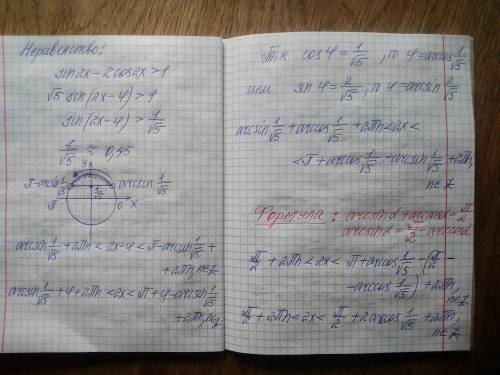 Неравенство:
sin2x-2cos2x>1
√5 sin(2x-φ)>1
sin(2x-φ)>1/√5
1/√5 ≈ 0,45
y
π-arcsin 1/√5 1/√5 arcsin 1/√5
π 0 x
arcsin 1/√5 + 2πn < 2x-φ < π-arcsin 1/√5 +
+2πn, n∈Z
arcsin 1/√5 + φ + 2πn < 2x < π + φ - arcsin 1/√5
+2πn, n∈Z
Т.к cos φ = 1/√5, то φ=arccos 1/√5
или sin φ = 2/√5, то φ=arcsin 2/√5
arcsin 1/√5 + arccos 1/√5 + 2πn < 2x <
< π + arccos 1/√5 - arcsin 1/√5 + 2πn,
n∈Z
Формула: arcsin α + arccos α = π/2
arcsin α = π/2 - arccos α
π/2 + 2πn < 2x < π + arccos 1/√5 - (π/2 -
-arccos 1/√5) + 2πn,
n∈Z
π/2 + 2πn < 2x < π/2 + 2arccos 1/√5 + 2πn,
n∈Z